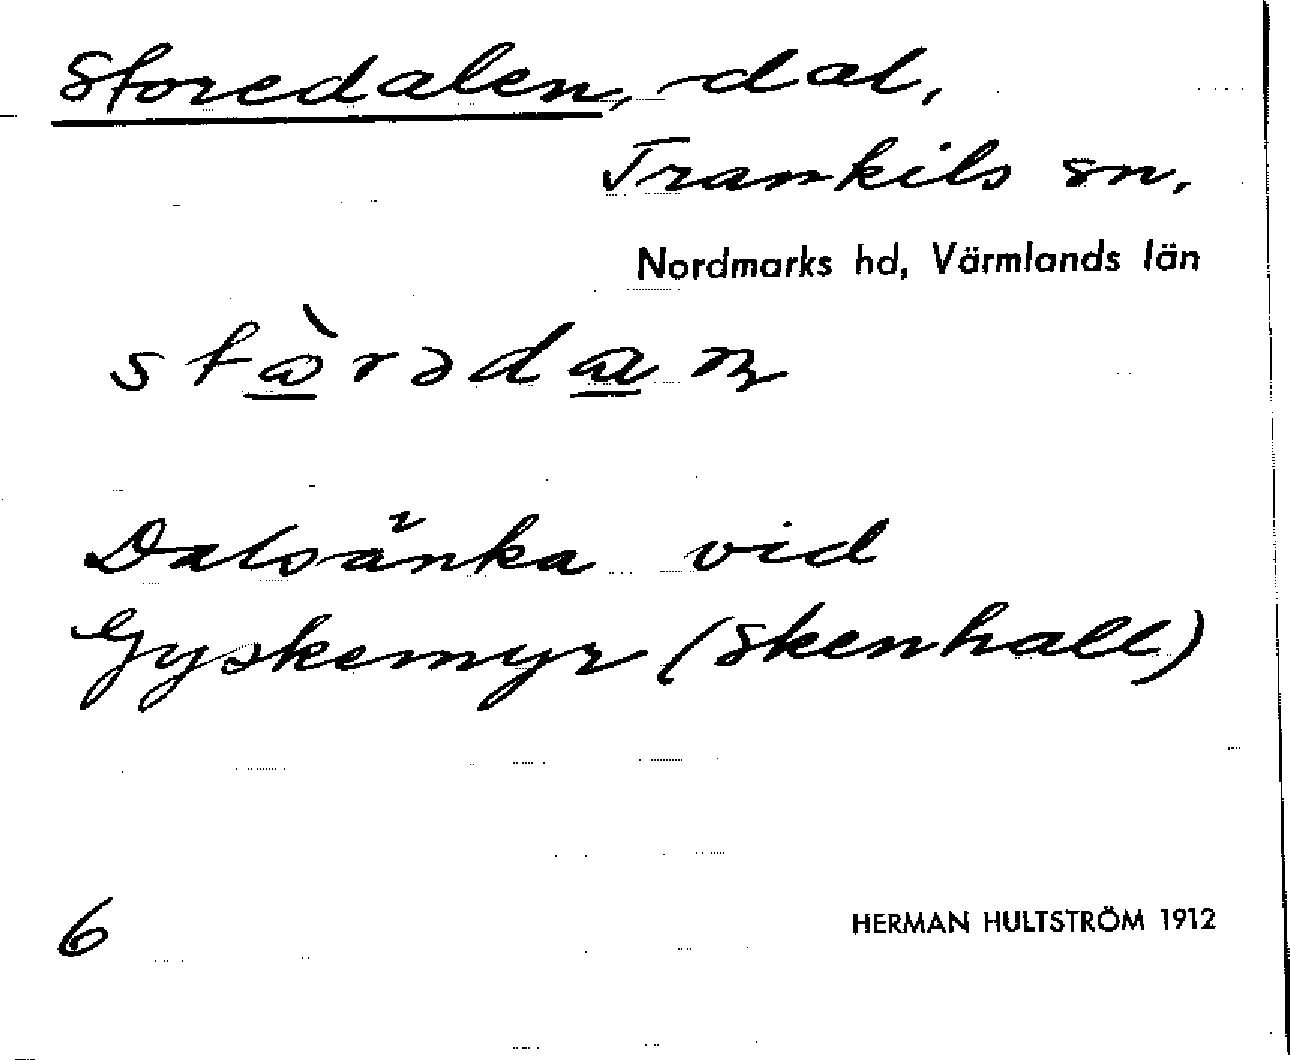 Storedalen, dal,
Trankils sn,
Nordmarks hd, Värmlands län
Dalsänka vid
Gyskemyr (Skenhall)
6
HERMAN HULTSTRÖM 1912